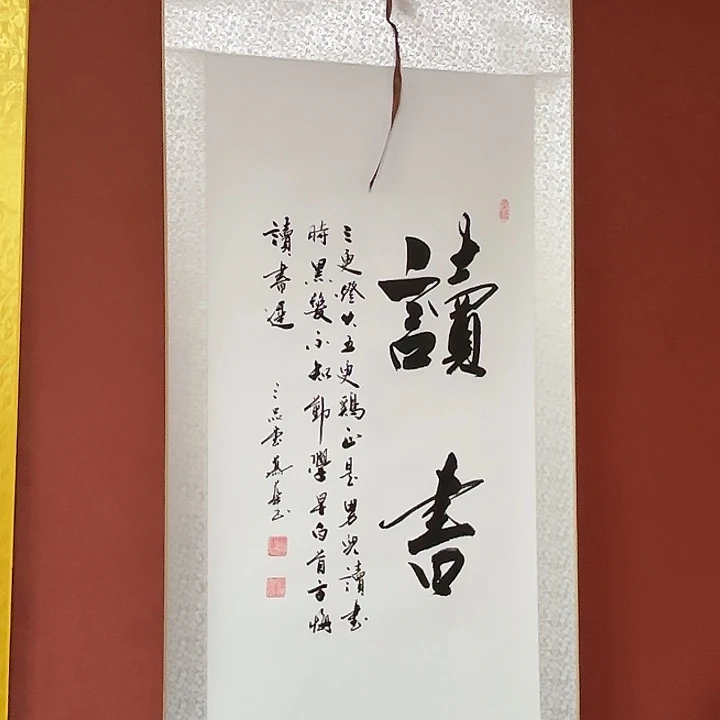 讀書
三更燈火五更鷄正是男兒讀書
時黑髮不知勤學早白首方悔
讀書遲